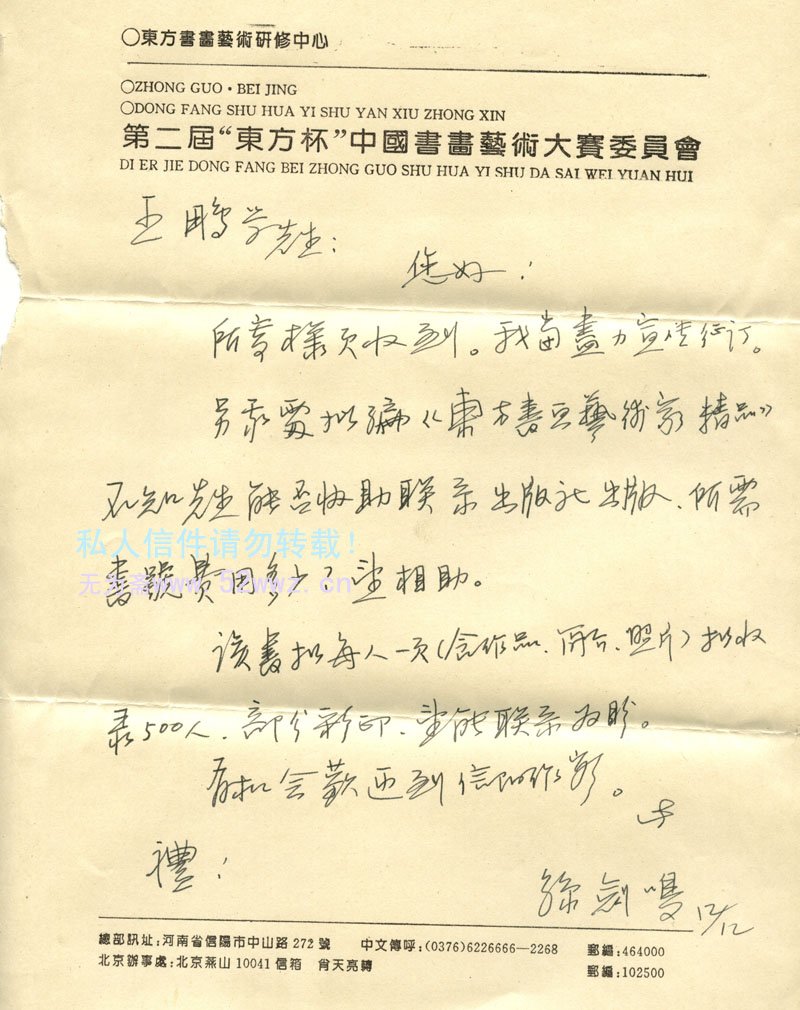 ○東方書畫藝術研修中心
○ZHONG GUO·BEI JING
○DONG FANG SHU HUA YI SHU YAN XIU ZHONG XIN
第二屆“東方杯”中國書畫藝術大賽委員會
DI ER JIE DONG FANG BEI ZHONG GUO SHU HUA YI SHU DA SAI WEI YUAN HUI
王鵬学先生:
您好!
所寄樣页收到。我当盡力宣传征订。
另 拟编《東方書画藝術家精品》
不知先生能否协助联系出版社出版、所需
私人信件请勿转载!
書號費用多少?望相助。
www.52wwz.cn
该書拟每人一页(含作品、简介、照片)拟收
录500人、部分彩印、望能联系为盼。
有机会歡迎到信阳作客。
此
禮!
孫劍鳴 12/12
總部訊址:河南省信陽市中山路272號 中文傳呼:(0376)6226666—2268 郵編:464000
北京辦事處:北京燕山10041信箱 肖天亮轉 郵編:102500